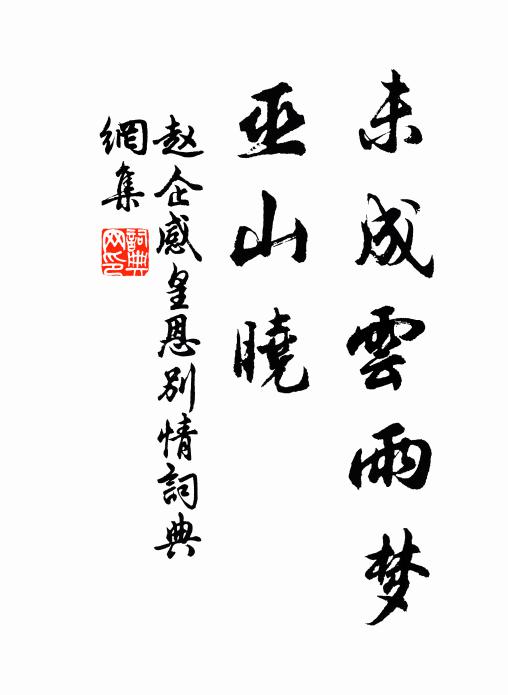 未成雲雨梦
巫山曉
赵企感皇恩别情詞典
網集
詞典
网印